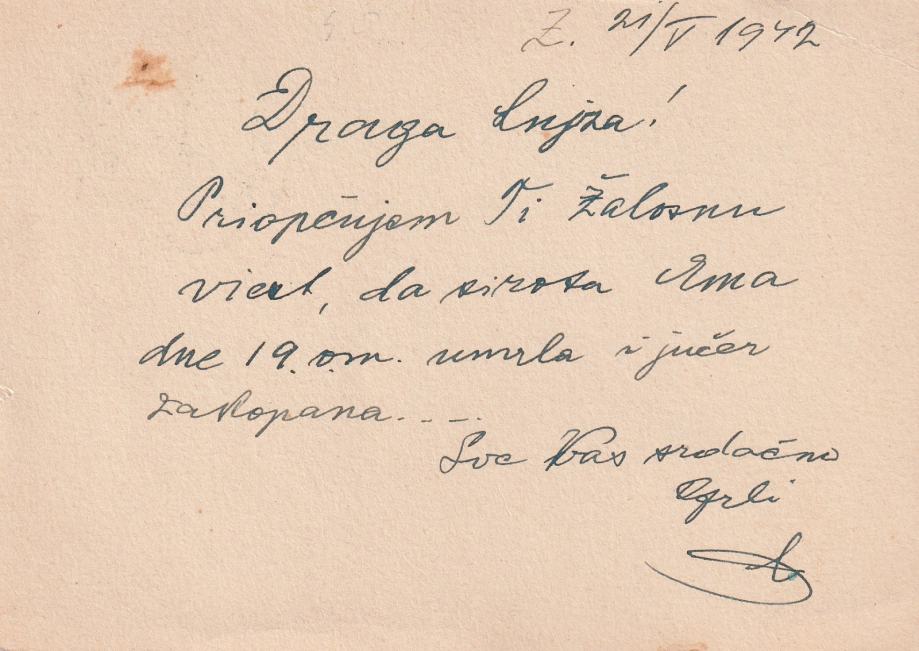 Z. 21/V 1942
Draga Lujza!
Priopćujem Ti žalosnu
viest, da sirota Ema
dne 19. o.m. umrla i jučer
zakopana.....
Sve Vas srdačno
Grli